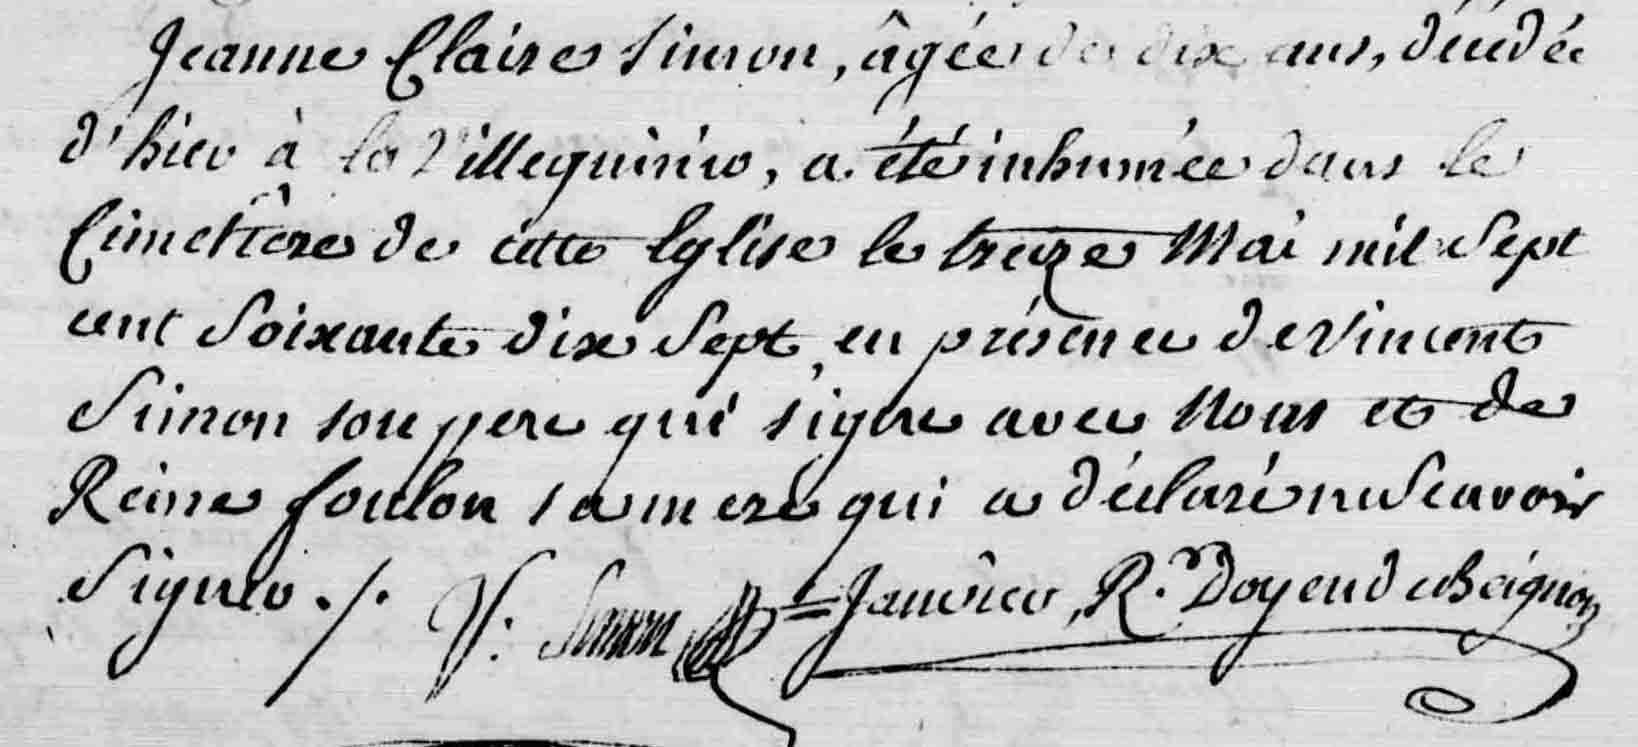 Jeanne Claire Simon, âgée de dix ans, décédée
d'hier à la Villequinio, a été inhumée dans le
Cimetiêre de cette Eglise le treize Mai mil sept
cent soixante dix sept, en présence de Vincent
Simon son pere qui signe avec Nous et de
Reine foulon sa mere qui a déclaré ne scavoir
signer ./.
V. Simon
Janvier, R.r Doyen de Beignon